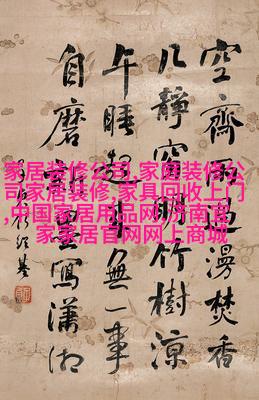 家居装修公司,家庭装修公
司家居装修,家具回收上门
,中国家居用品网,济南宜
家家居官网网上商城
空齋漫焚香
几靜窓明竹樹涼
午睡起來無一事
自磨墨寫瀟湘